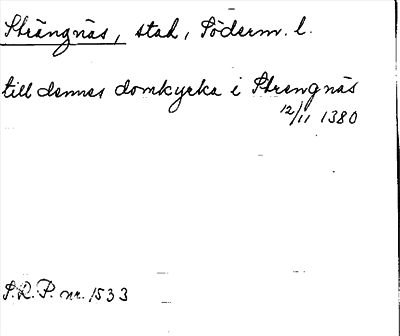 Strängnäs, stad, Söderm. l.
till dennes domkyrka i Strengnäs
12/11 1380
S.R.P. nr. 1533